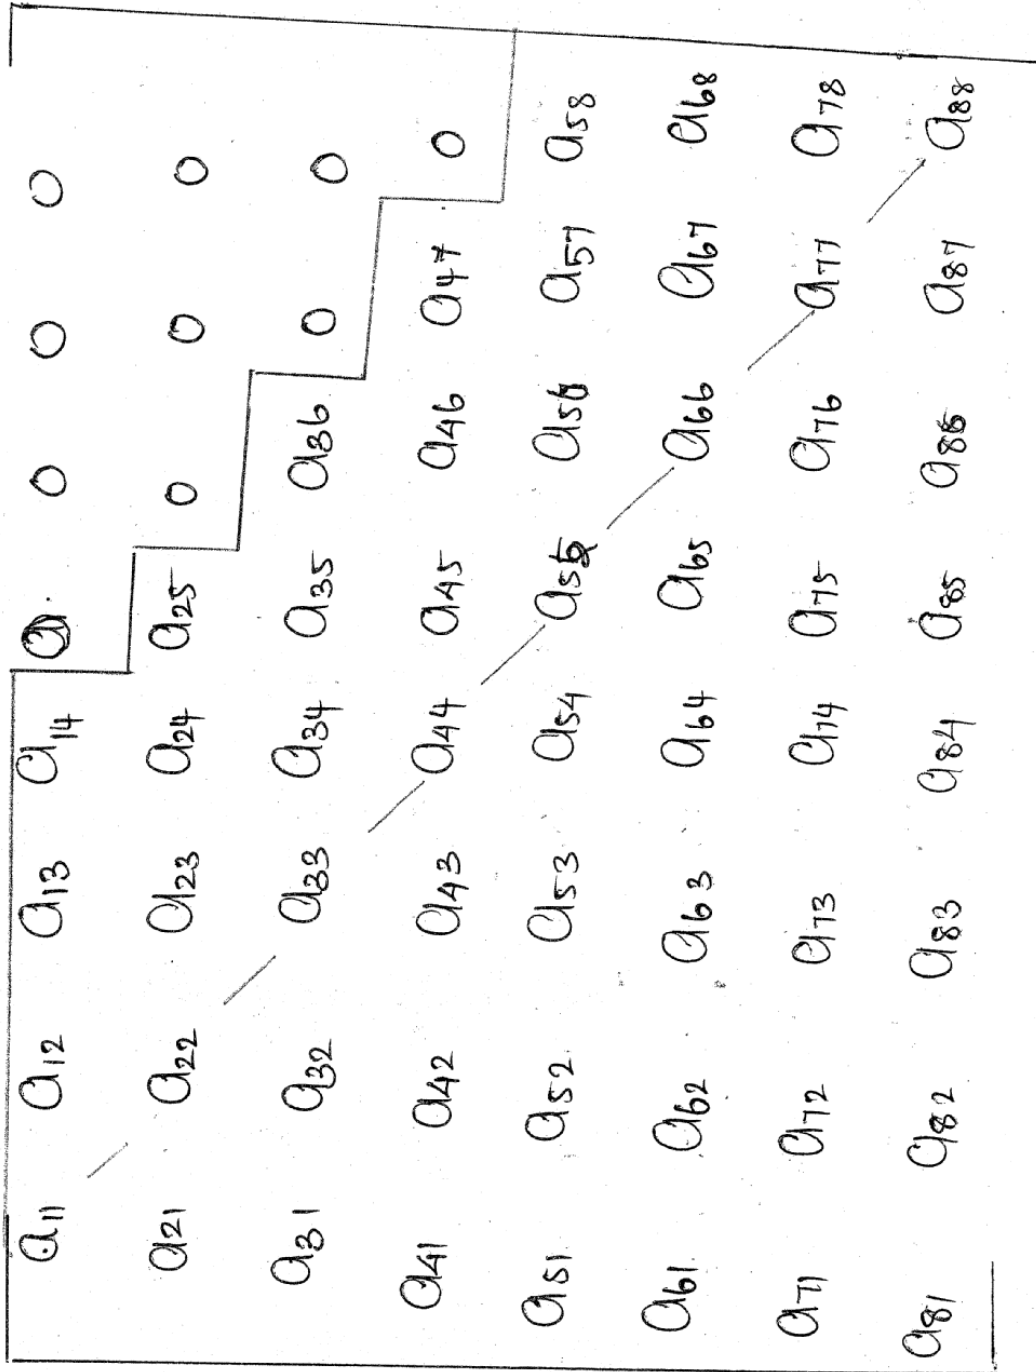 a11 a12 a13 a14 0 0 0 0
a21 a22 a23 a24 a25 0 0 0
a31 a32 a33 a34 a35 a36 0 0
a41 a42 a43 a44 a45 a46 a47 0
a51 a52 a53 a54 a55 a56 a57 a58
a61 a62 a63 a64 a65 a66 a67 a68
a71 a72 a73 a74 a75 a76 a77 a78
a81 a82 a83 a84 a85 a86 a87 a88